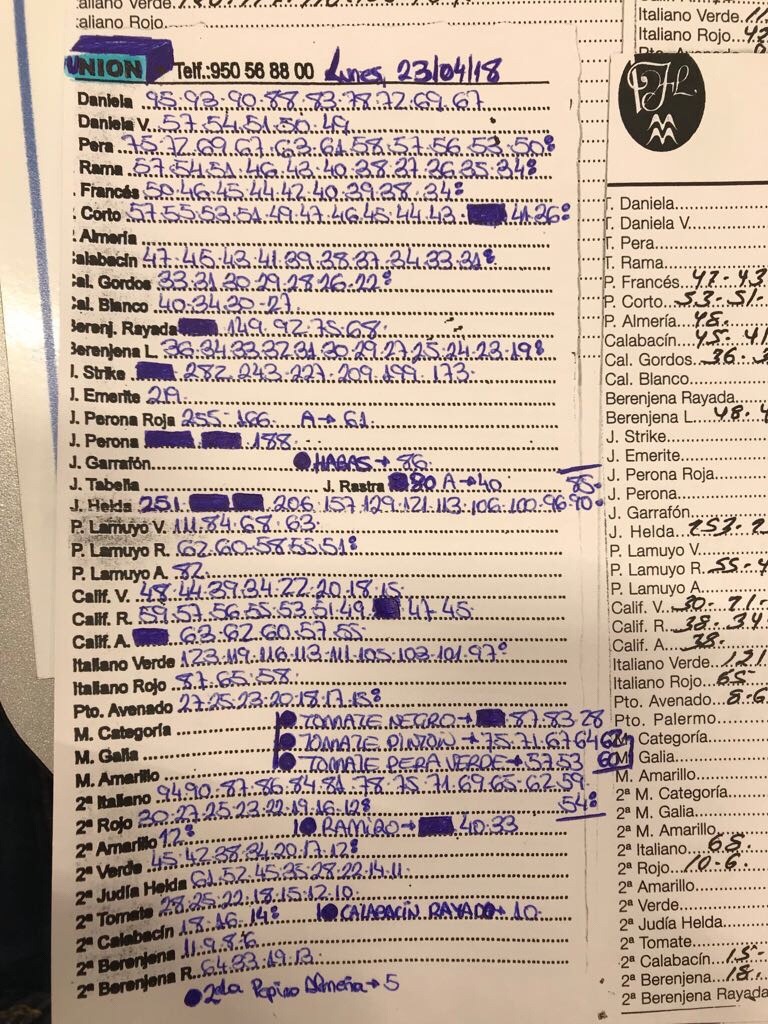 Italiano Rojo
UNION Telf.:950 56 88 00 Lunes, 23/04/18
Daniela 95-93-90-88-83-78-72-69-67
Daniela V. 57-54-51-50-49
Pera 75-72-69-67-63-61-58-57-56-53-50
Rama 57-54-51-46-43-40-38-37-36-35-34
Francés 50-46-45-44-42-40-39-38-34
Corto 57-55-53-51-49-47-46-45-44-43 41-36
Almería
Calabacín 47-45-43-41-39-38-37-34-33-31
Cal. Gordos 33-31-30-29-28-26-22
Cal. Blanco 40-34-30-27
Berenj. Rayada 149-92-75-68
Berenjena L. 36-34-33-32-31-30-29-27-25-24-23-19
J. Strike 282-243-227-209-199-173
J. Emerite 219
J. Perona Roja 255-166 A→61
J. Perona 188
J. Garrafón HABAS→86
J. Tabeña J. Rastra 80 A→40 85
J. Helda 251 206-157-129-121-113-106-100-96-90
P. Lamuyo V. 111-84-68-63
P. Lamuyo R. 62-60-58-55-51
P. Lamuyo A. 82
Calif. V. 48-44-39-34-22-20-18-15
Calif. R. 59-57-56-55-53-51-49 47-45
Calif. A. 63-62-60-57-55
Italiano Verde 123-119-116-113-111-105-103-101-97
Italiano Rojo 87-65-58
Pto. Avenado 27-25-23-20-18-17-15
M. Categoría TOMATE NEGRO→ 87-83-78
M. Galia TOMATE PINTON→75-71-67-64-62
M. Amarillo TOMATE PERA VERDE→57-53 60
2ª Italiano 94-90-87-86-84-81-78-75-71-69-65-62-59
54
2ª Rojo 30-27-25-23-22-19-16-12
2ª Amarillo 12 RAMIRO→ 40-33
2ª Verde 45-42-38-34-20-17-12
2ª Judía Helda 61-52-45-35-28-22-14-11
2ª Tomate 28-25-22-18-15-12-10
2ª Calabacín 18-16-14 CALABACÍN RAYADO→10
2ª Berenjena 11-9-8-6
2ª Berenjena R. 64-33-19-13
2da Pepino Almeria→5
Italiano Verde
Italiano Rojo
T. Daniela
T. Daniela V.
T. Pera
T. Rama
P. Francés 47-43
P. Corto 53-51-
P. Almería 48
Calabacín 45-41
Cal. Gordos 36-
Cal. Blanco
Berenjena Rayada
Berenjena L. 48-4
J. Strike
J. Emerite
J. Perona Roja
J. Perona
J. Garrafón
J. Helda 253-2
P. Lamuyo V.
P. Lamuyo R. 55-4
P. Lamuyo A.
Calif. V. 30-21-
Calif. R. 38-34
Calif. A. 38-
Italiano Verde 121
Italiano Rojo 65-
Pto. Avenado 8-6
Pto. Palermo
M. Categoría
M. Galia
M. Amarillo
2ª M. Categoría
2ª M. Galia
2ª M. Amarillo
2ª Italiano 65
2ª Rojo 10-6
2ª Amarillo
2ª Verde
2ª Judía Helda
2ª Tomate
2ª Calabacín 15-
2ª Berenjena 18
2ª Berenjena Rayada